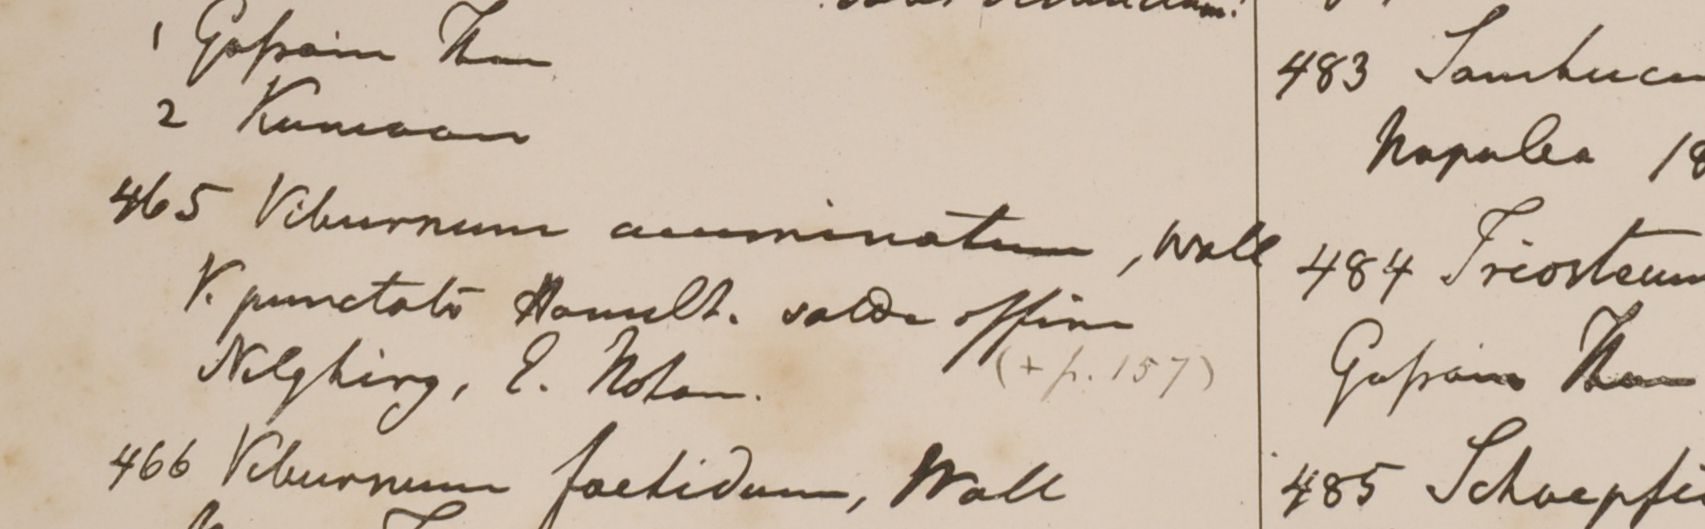 1 Gossain Than
2 Kumaon
465 Viburnum acuminatum, Wall
V. punctato Hamilt. valde affine
Nilghiry, E. Noton.
(+ p. 157)
466 Viburnum foetidum, Wall
483 Sambucu
Napalea 18
484 Triosteum
Gossain Than
485 Schoepfi